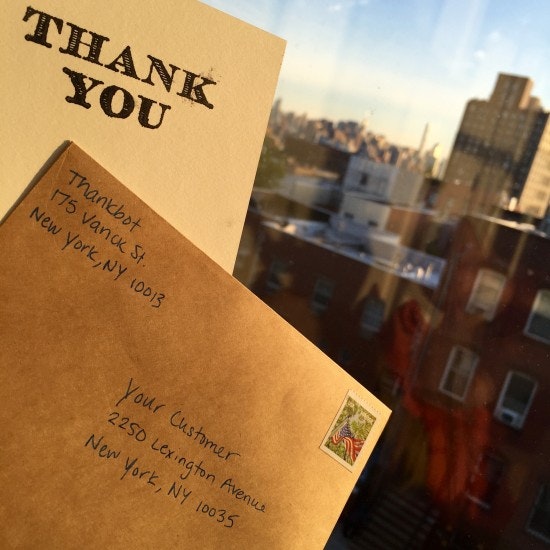 THANK
YOU
Thankbot
175 Varick St.
New York, NY 10013
Your Customer
2250 Lexington Avenue
New York, NY 10035